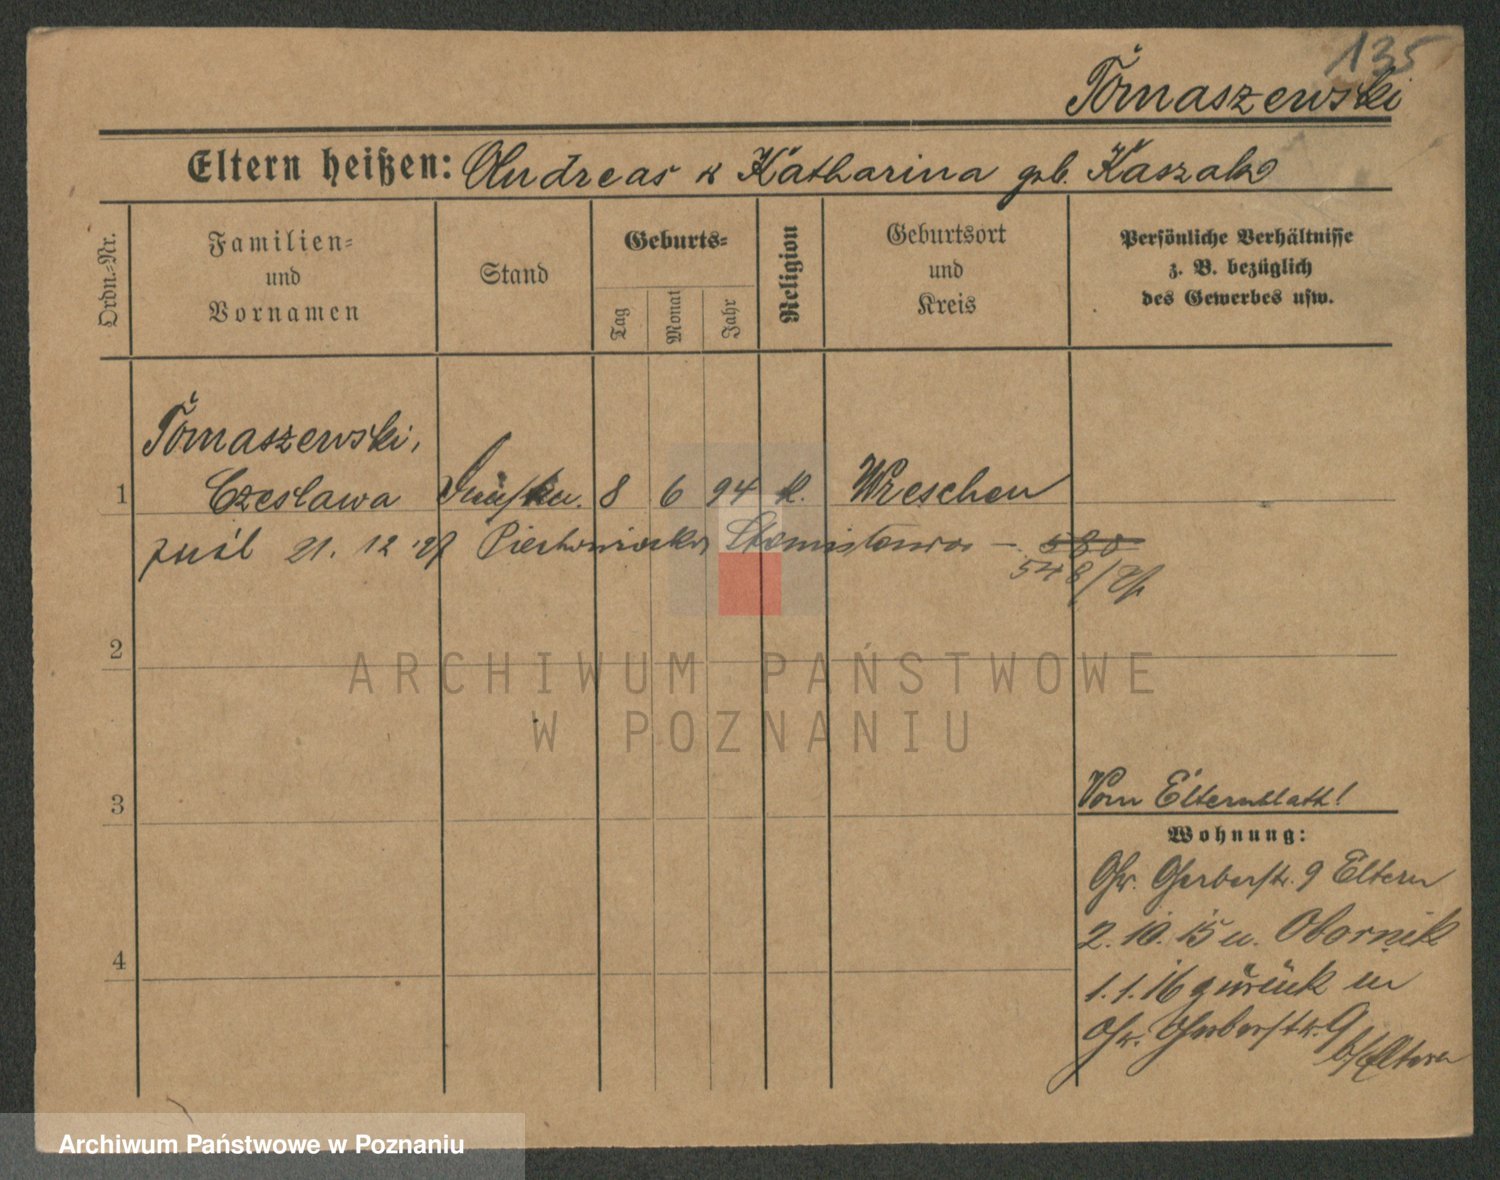 135
Tomaszewski
Eltern heißen: Andreas u Katharina geb. Kaszak
Ordn.-Nr.
Familien-
und
Vornamen
Stand
Geburts-
Tag
Monat
Jahr
Religion
Geburtsort
und
Kreis
Persönliche Verhältnisse
z. B. bezüglich
des Gewerbes usw.
Tomaszewski,
1 Czeslawa 8 6 94 k. Wreschen
21. 12 Stanisława — 580
548/
2
3
Vom Elternblatt!
Wohnung:
Gr. Gerberstr. 9 Eltern
2. 10. 15 u. Obornik
4
1. 1. 16 zurück in
Gr. Gerberstr. 9
b/Eltern
ARCHIWUM PAŃSTWOWE
W POZNANIU
Archiwum Państwowe w Poznaniu